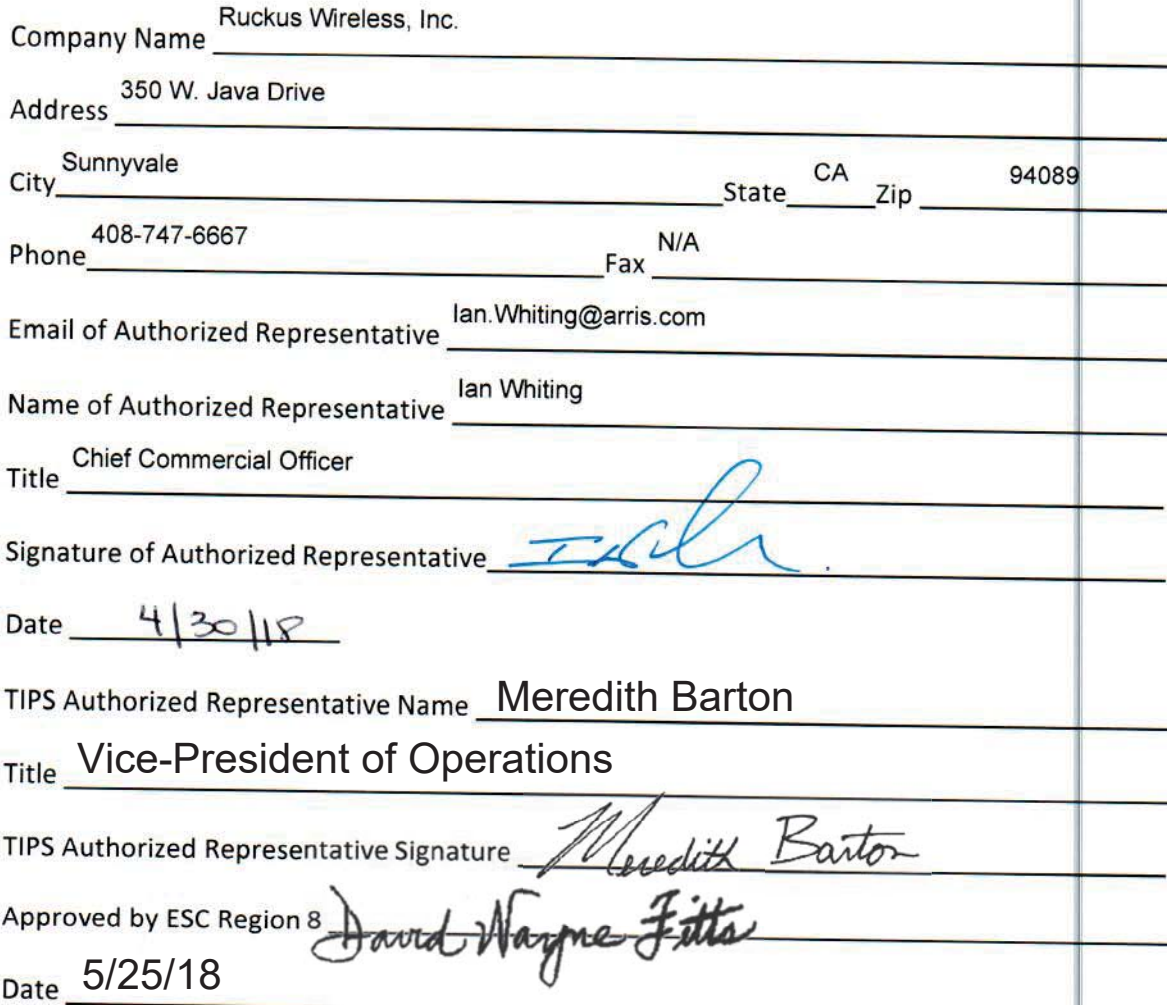 Company Name Ruckus Wireless, Inc.
Address 350 W. Java Drive
City Sunnyvale State CA Zip 94089
Phone 408-747-6667 Fax N/A
Email of Authorized Representative Ian.Whiting@arris.com
Name of Authorized Representative Ian Whiting
Title Chief Commercial Officer
Signature of Authorized Representative
Date 4/30/18
TIPS Authorized Representative Name Meredith Barton
Title Vice-President of Operations
TIPS Authorized Representative Signature Meredith Barton
Approved by ESC Region 8 David Wayne Fitts
Date 5/25/18